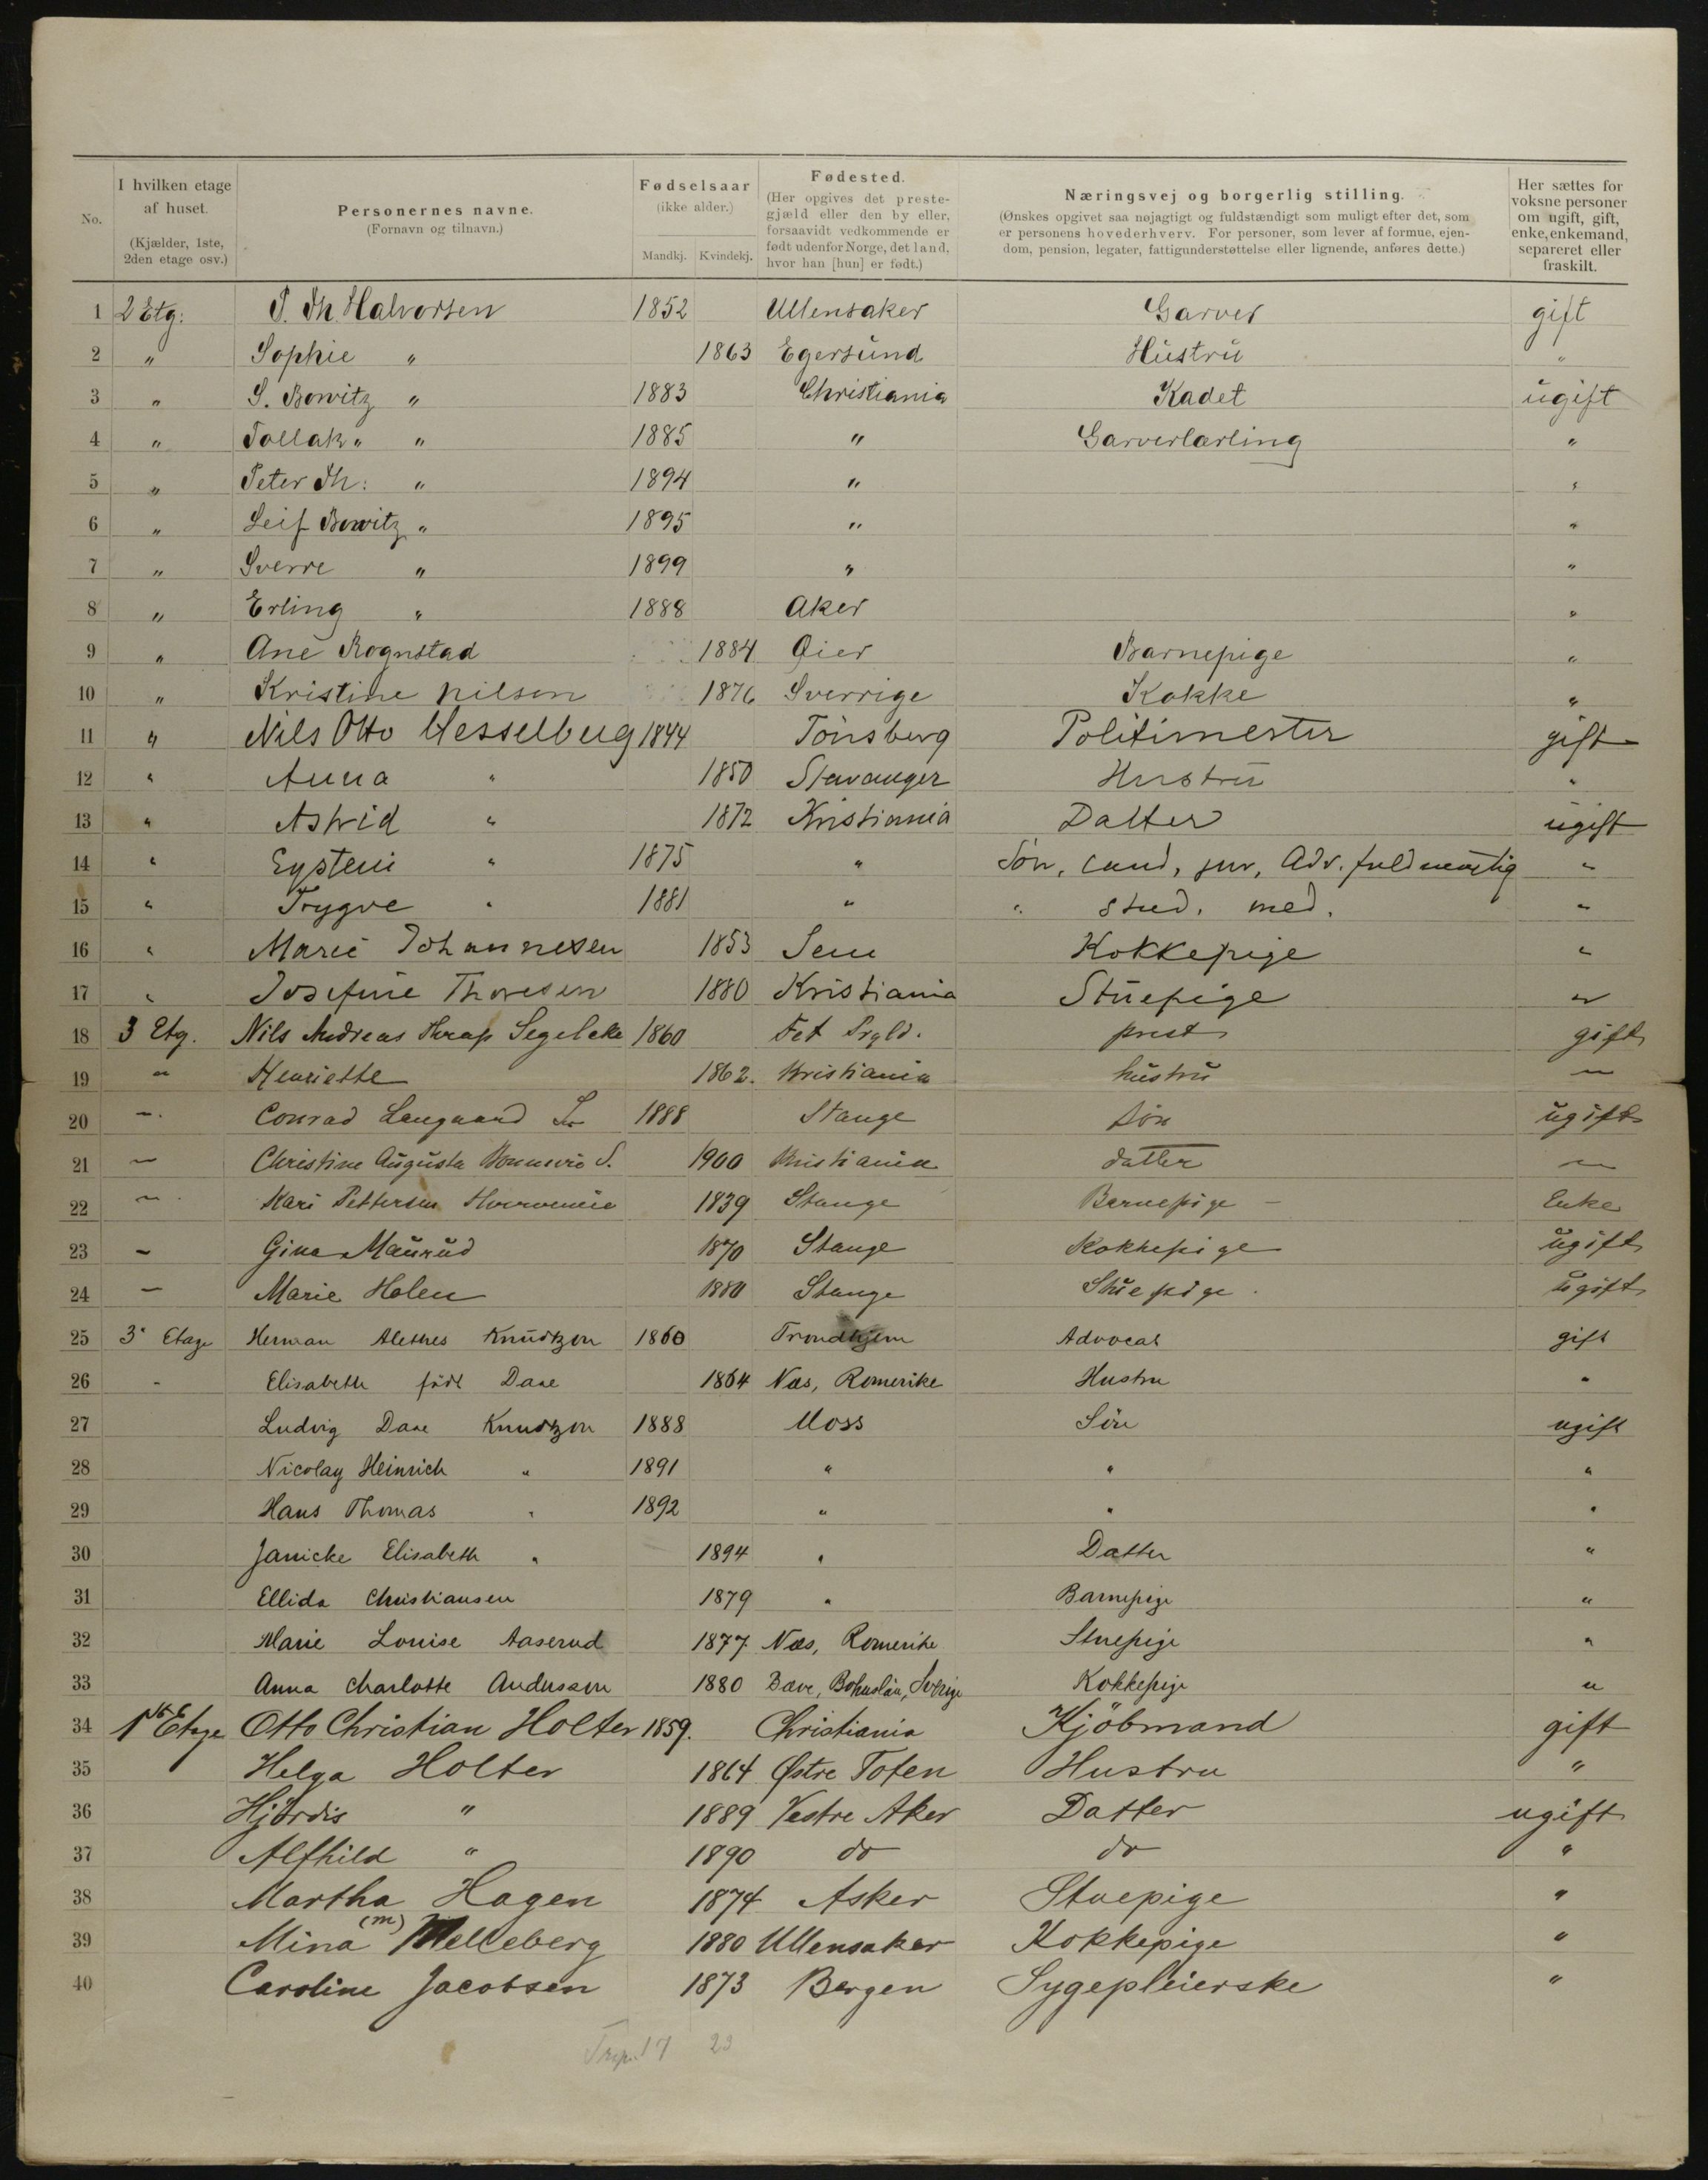 No.
I hvilken etage af huset. (Kjælder, 1ste, 2den etage osv.)
Personernes navne. (Fornavn og tilnavn.)
Fødselsaar (ikke alder.) Mandkj. Kvindekj.
Fødested. (Her opgives det prestegjæld eller den by eller, forsaavidt vedkommende er født udenfor Norge, det land, hvor han [hun] er født.)
Næringsvej og borgerlig stilling. (Ønskes opgivet saa nøjagtigt og fuldstændigt som muligt efter det, som er personens hovederhverv. For personer, som lever af formue, ejendom, pension, legater, fattigunderstøttelse eller lignende, anføres dette.)
Her sættes for voksne personer om ugift, gift, enke, enkemand, separeret eller fraskilt.
1 2 Etg: P. Th. Halvorsen 1852 Ullensaker Garver gift
2 " Sophie " 1863 Egersund Hustru "
3 " S. Bowitz " 1883 Christiania Kadet ugift
4 " Tollak " " 1885 " Garverlærling "
5 " Peter Th: " 1894 " "
6 " Leif Bowitz " 1895 " "
7 " Sverre " 1899 " "
8 " Erling " 1888 Aker "
9 " Ane Rognstad 1884 Øier Barnepige "
10 " Kristine Nilsen 1876 Sverrige Kokke "
11 " Nils Otto Hesselberg 1844 Tönsberg Politimester gift
12 " Anna " 1850 Stavanger Hustru "
13 " Astrid " 1872 Kristiania Datter ugift
14 " Eystein " 1875 " Sön, cand, jur, Adv. fuldmægtig "
15 " Trygve " 1881 " " stud. med. "
16 " Marie Johannesen 1853 Sem Kokkepige "
17 " Josefine Thoresen 1880 Kristiania Stuepige "
18 3 Etg. Nils Andreas Thrap Segelcke 1860 Fet Prgld. prest gift
19 " Henriette 1862. Kristiania hustru "
20 " Conrad Langaard 1888 Stange sön ugift
21 " Christine Augusta S. 1900 Kristiania datter "
22 " Kari Pettersen 1839 Stange Barnepige Enke
23 " Gina Maurud 1870 Stange Kokkepige ugift
24 " Marie Holen 1880 Stange Stuepige ugift
25 3' Etage Herman Alethes Knudtzon 1860 Trondhjem Advocat gift
26 " Elisabeth född Daae 1864 Næs, Romerike Hustru "
27 Ludvig Daae Knudtzon 1888 Moss Sön ugift
28 Nicolay Heinrich " 1891 " " "
29 Hans Thomas " 1892 " " "
30 Janicke Elisabeth " 1894 " Datter "
31 Ellida Christiansen 1879 " Barnepige "
32 Marie Louise Aaserud 1877 Næs, Romerike Stuepige "
33 Anna Charlotte Andersson 1880 Bave, Bohuslän, Sverige Kokkepige "
34 1ste Etage Otto Christian Holter 1859. Christiania Kjöbmand gift
35 Helga Holter 1864 Østre Toten Hustru "
36 Hjördis " 1889 Vestre Aker Datter ugift
37 Alfhild " 1890 do do "
38 Martha Hagen 1874 Asker Stuepige "
39 Mina (M) Melleberg 1880 Ullensaker Kokkepige "
40 Caroline Jacobsen 1873 Bergen Sygepleierske "
17 23